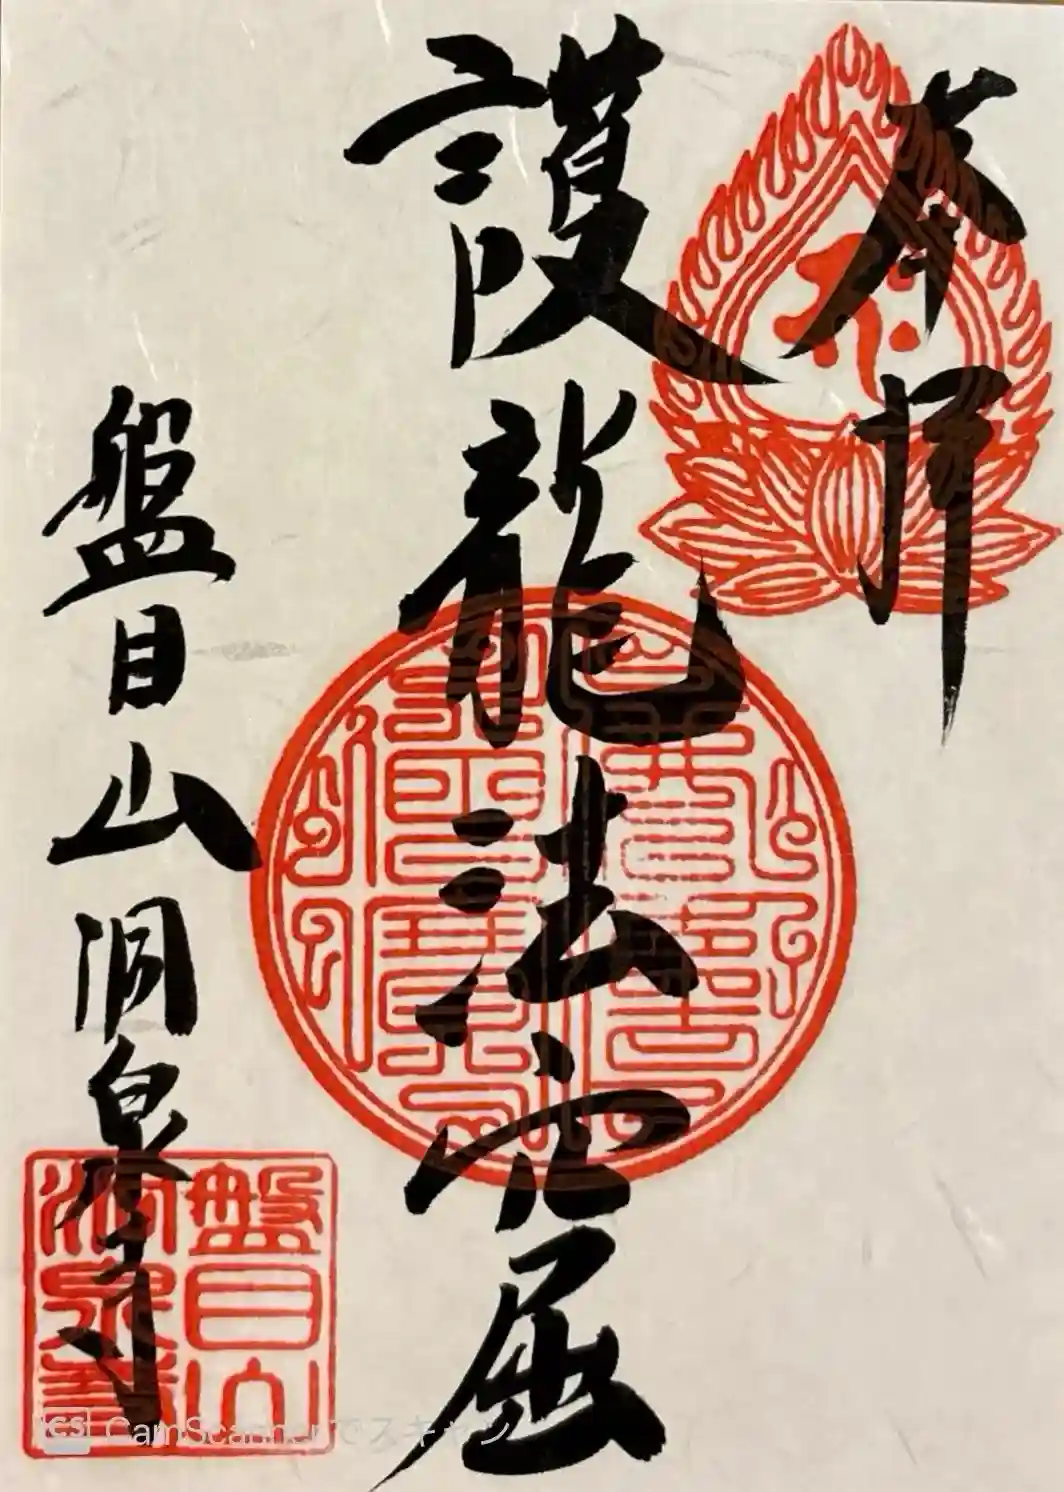 奉拝
護龍法窟
盤目山洞泉寺
盤目山
洞泉寺
CS CamScannerでスキャン